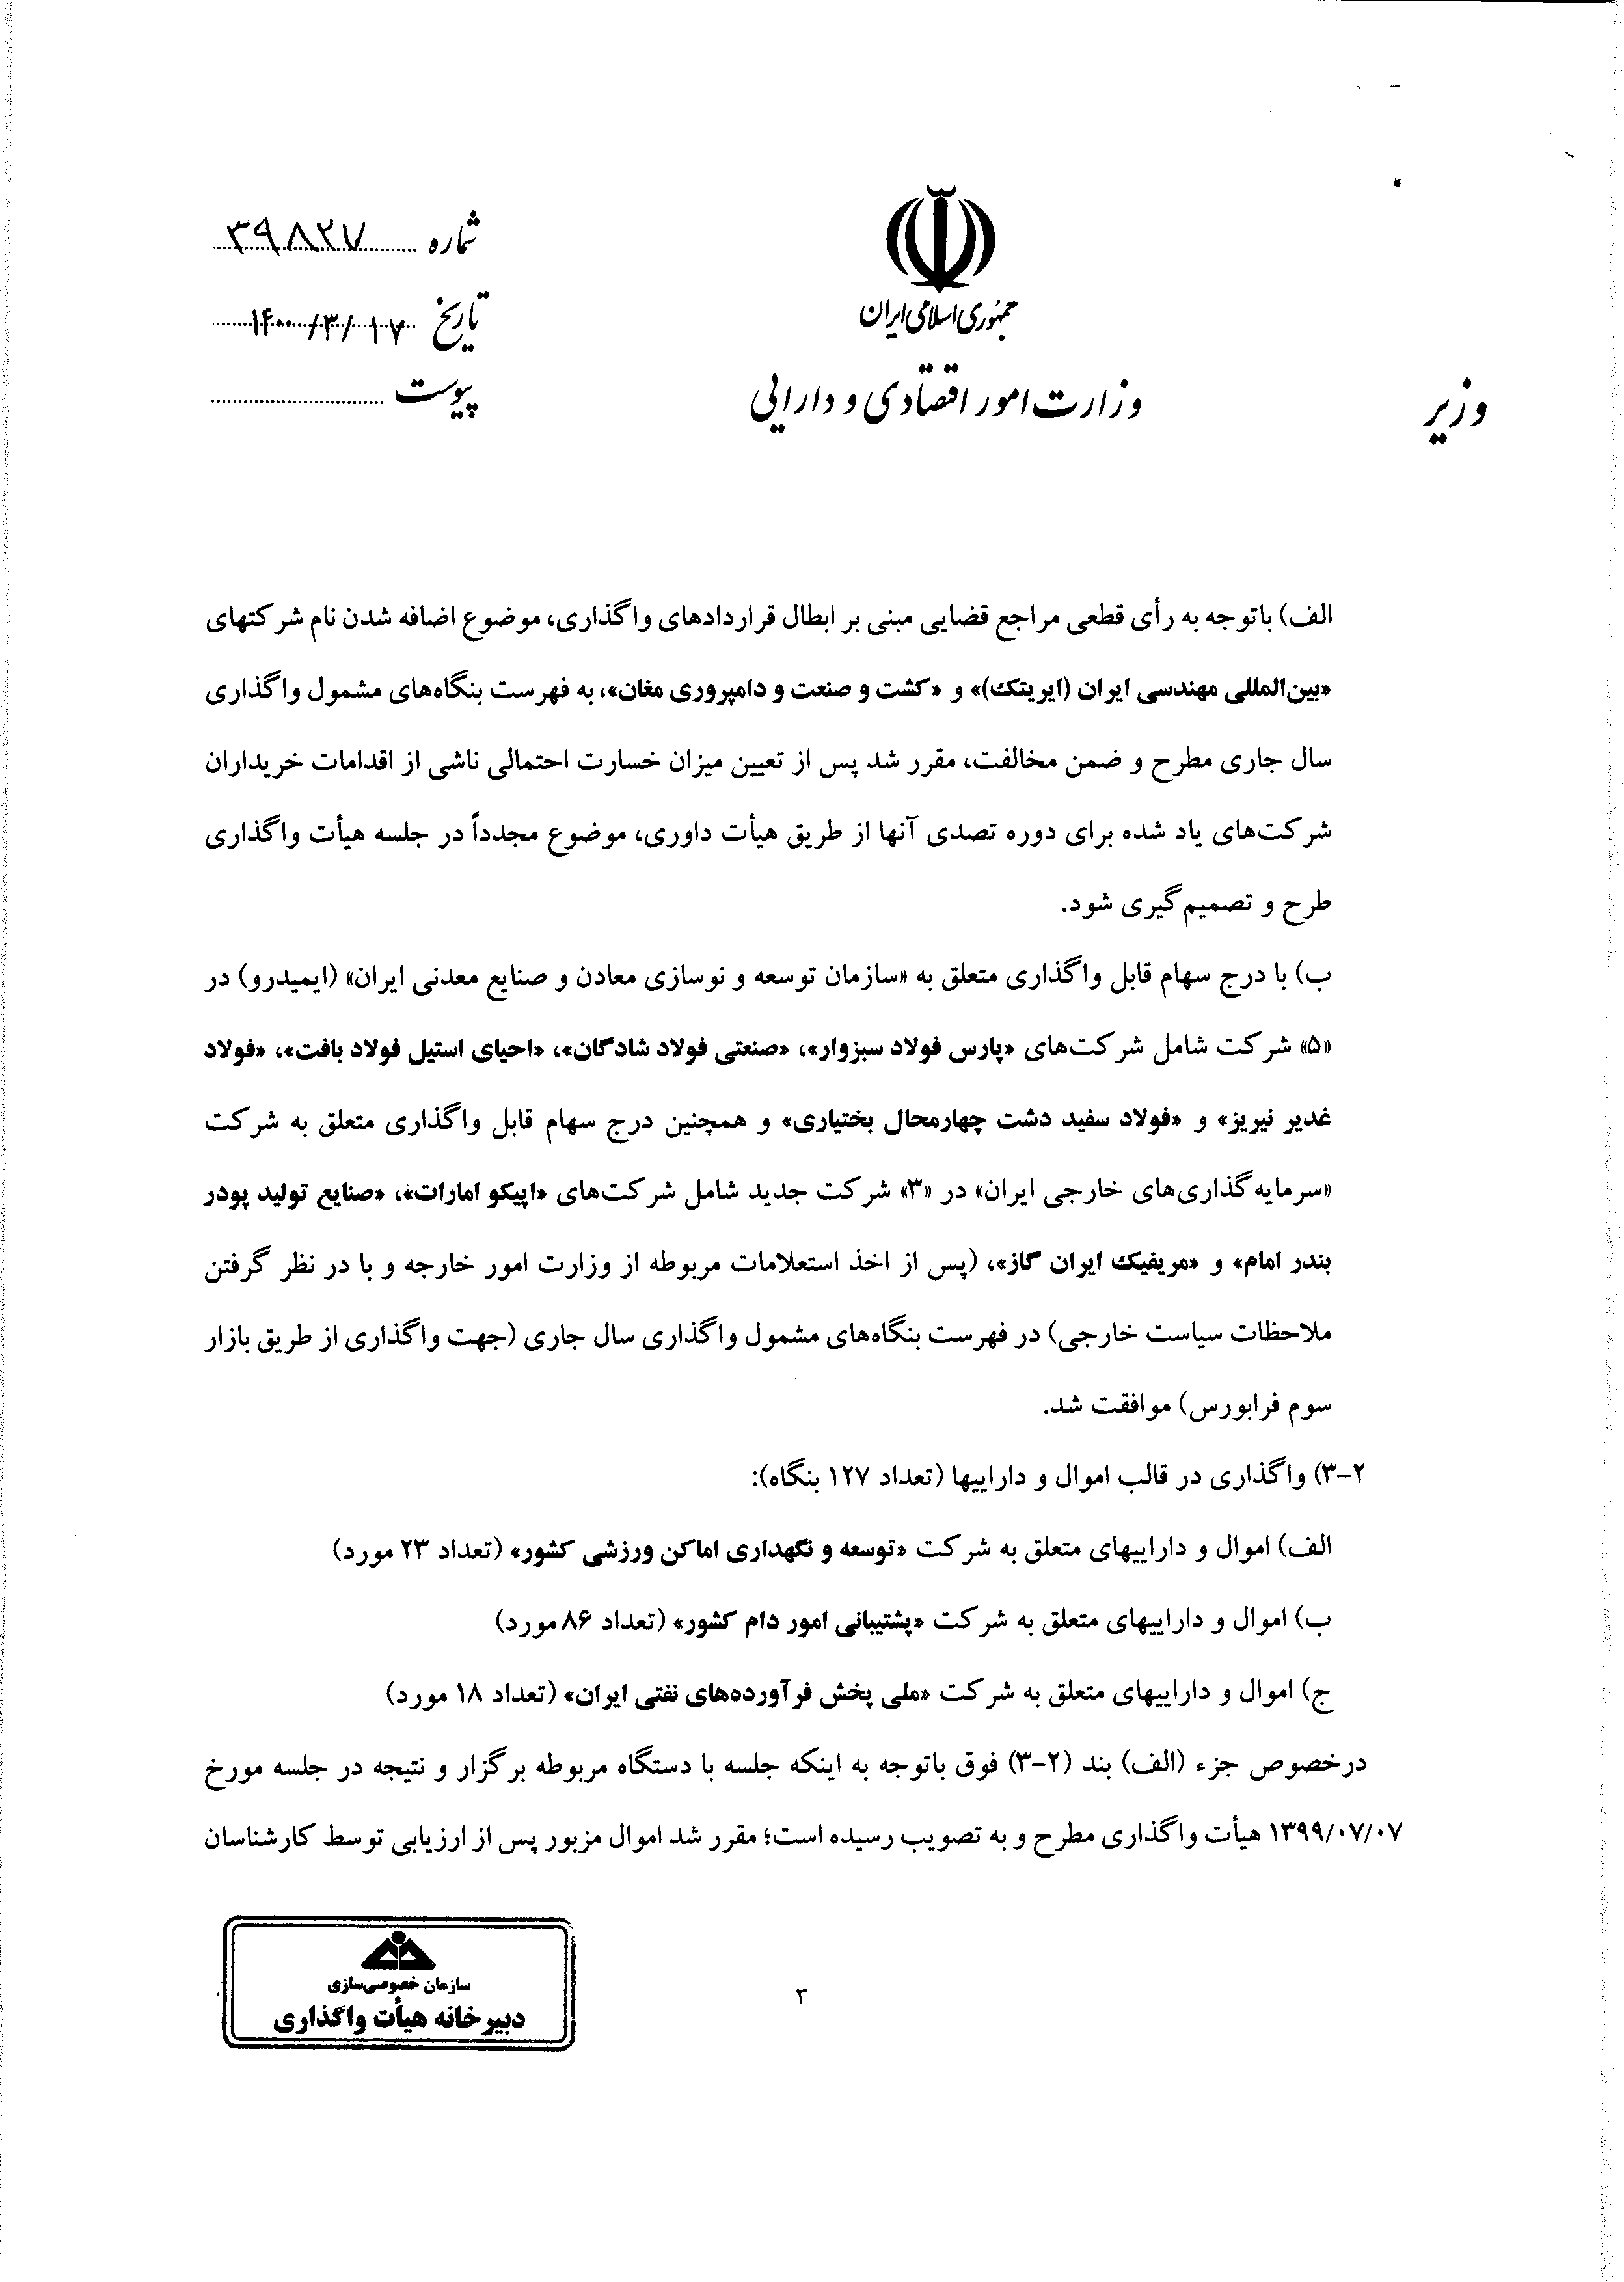 جمهوری اسلامی ایران
وزارت امور اقتصادی و دارایی
وزیر
شماره ۳۹۸۲۷
تاریخ ۱۴۰۰/۳/۱۷
پیوست
الف) باتوجه به رأی قطعی مراجع قضایی مبنی بر ابطال قراردادهای واگذاری، موضوع اضافه شدن نام شرکتهای
«بین‌المللی مهندسی ایران (ایریتک)» و «کشت و صنعت و دامپروری مغان»، به فهرست بنگاه‌های مشمول واگذاری
سال جاری مطرح و ضمن مخالفت، مقرر شد پس از تعیین میزان خسارت احتمالی ناشی از اقدامات خریداران
شرکت‌های یاد شده برای دوره تصدی آنها از طریق هیأت داوری، موضوع مجدداً در جلسه هیأت واگذاری
طرح و تصمیم‌گیری شود.
ب) با درج سهام قابل واگذاری متعلق به «سازمان توسعه و نوسازی معادن و صنایع معدنی ایران» (ایمیدرو) در
«۵» شرکت شامل شرکت‌های «پارس فولاد سبزوار»، «صنعتی فولاد شادگان»، «احیای استیل فولاد بافت»، «فولاد
غدیر نیریز» و «فولاد سفید دشت چهارمحال بختیاری» و همچنین درج سهام قابل واگذاری متعلق به شرکت
«سرمایه‌گذاری‌های خارجی ایران» در «۳» شرکت جدید شامل شرکت‌های «اپیکو امارات»، «صنایع تولید پودر
بندر امام» و «مریفیک ایران گاز»، (پس از اخذ استعلامات مربوطه از وزارت امور خارجه و با در نظر گرفتن
ملاحظات سیاست خارجی) در فهرست بنگاه‌های مشمول واگذاری سال جاری (جهت واگذاری از طریق بازار
سوم فرابورس) موافقت شد.
۳-۲) واگذاری در قالب اموال و داراییها (تعداد ۱۲۷ بنگاه):
الف) اموال و داراییهای متعلق به شرکت «توسعه و نگهداری اماکن ورزشی کشور» (تعداد ۲۳ مورد)
ب) اموال و داراییهای متعلق به شرکت «پشتیبانی امور دام کشور» (تعداد ۸۶ مورد)
ج) اموال و داراییهای متعلق به شرکت «ملی پخش فرآورده‌های نفتی ایران» (تعداد ۱۸ مورد)
درخصوص جزء (الف) بند (۳-۲) فوق باتوجه به اینکه جلسه با دستگاه مربوطه برگزار و نتیجه در جلسه مورخ
۱۳۹۹/۰۷/۰۷ هیأت واگذاری مطرح و به تصویب رسیده است؛ مقرر شد اموال مزبور پس از ارزیابی توسط کارشناسان
سازمان خصوصی‌سازی
دبیرخانه هیأت واگذاری
۳